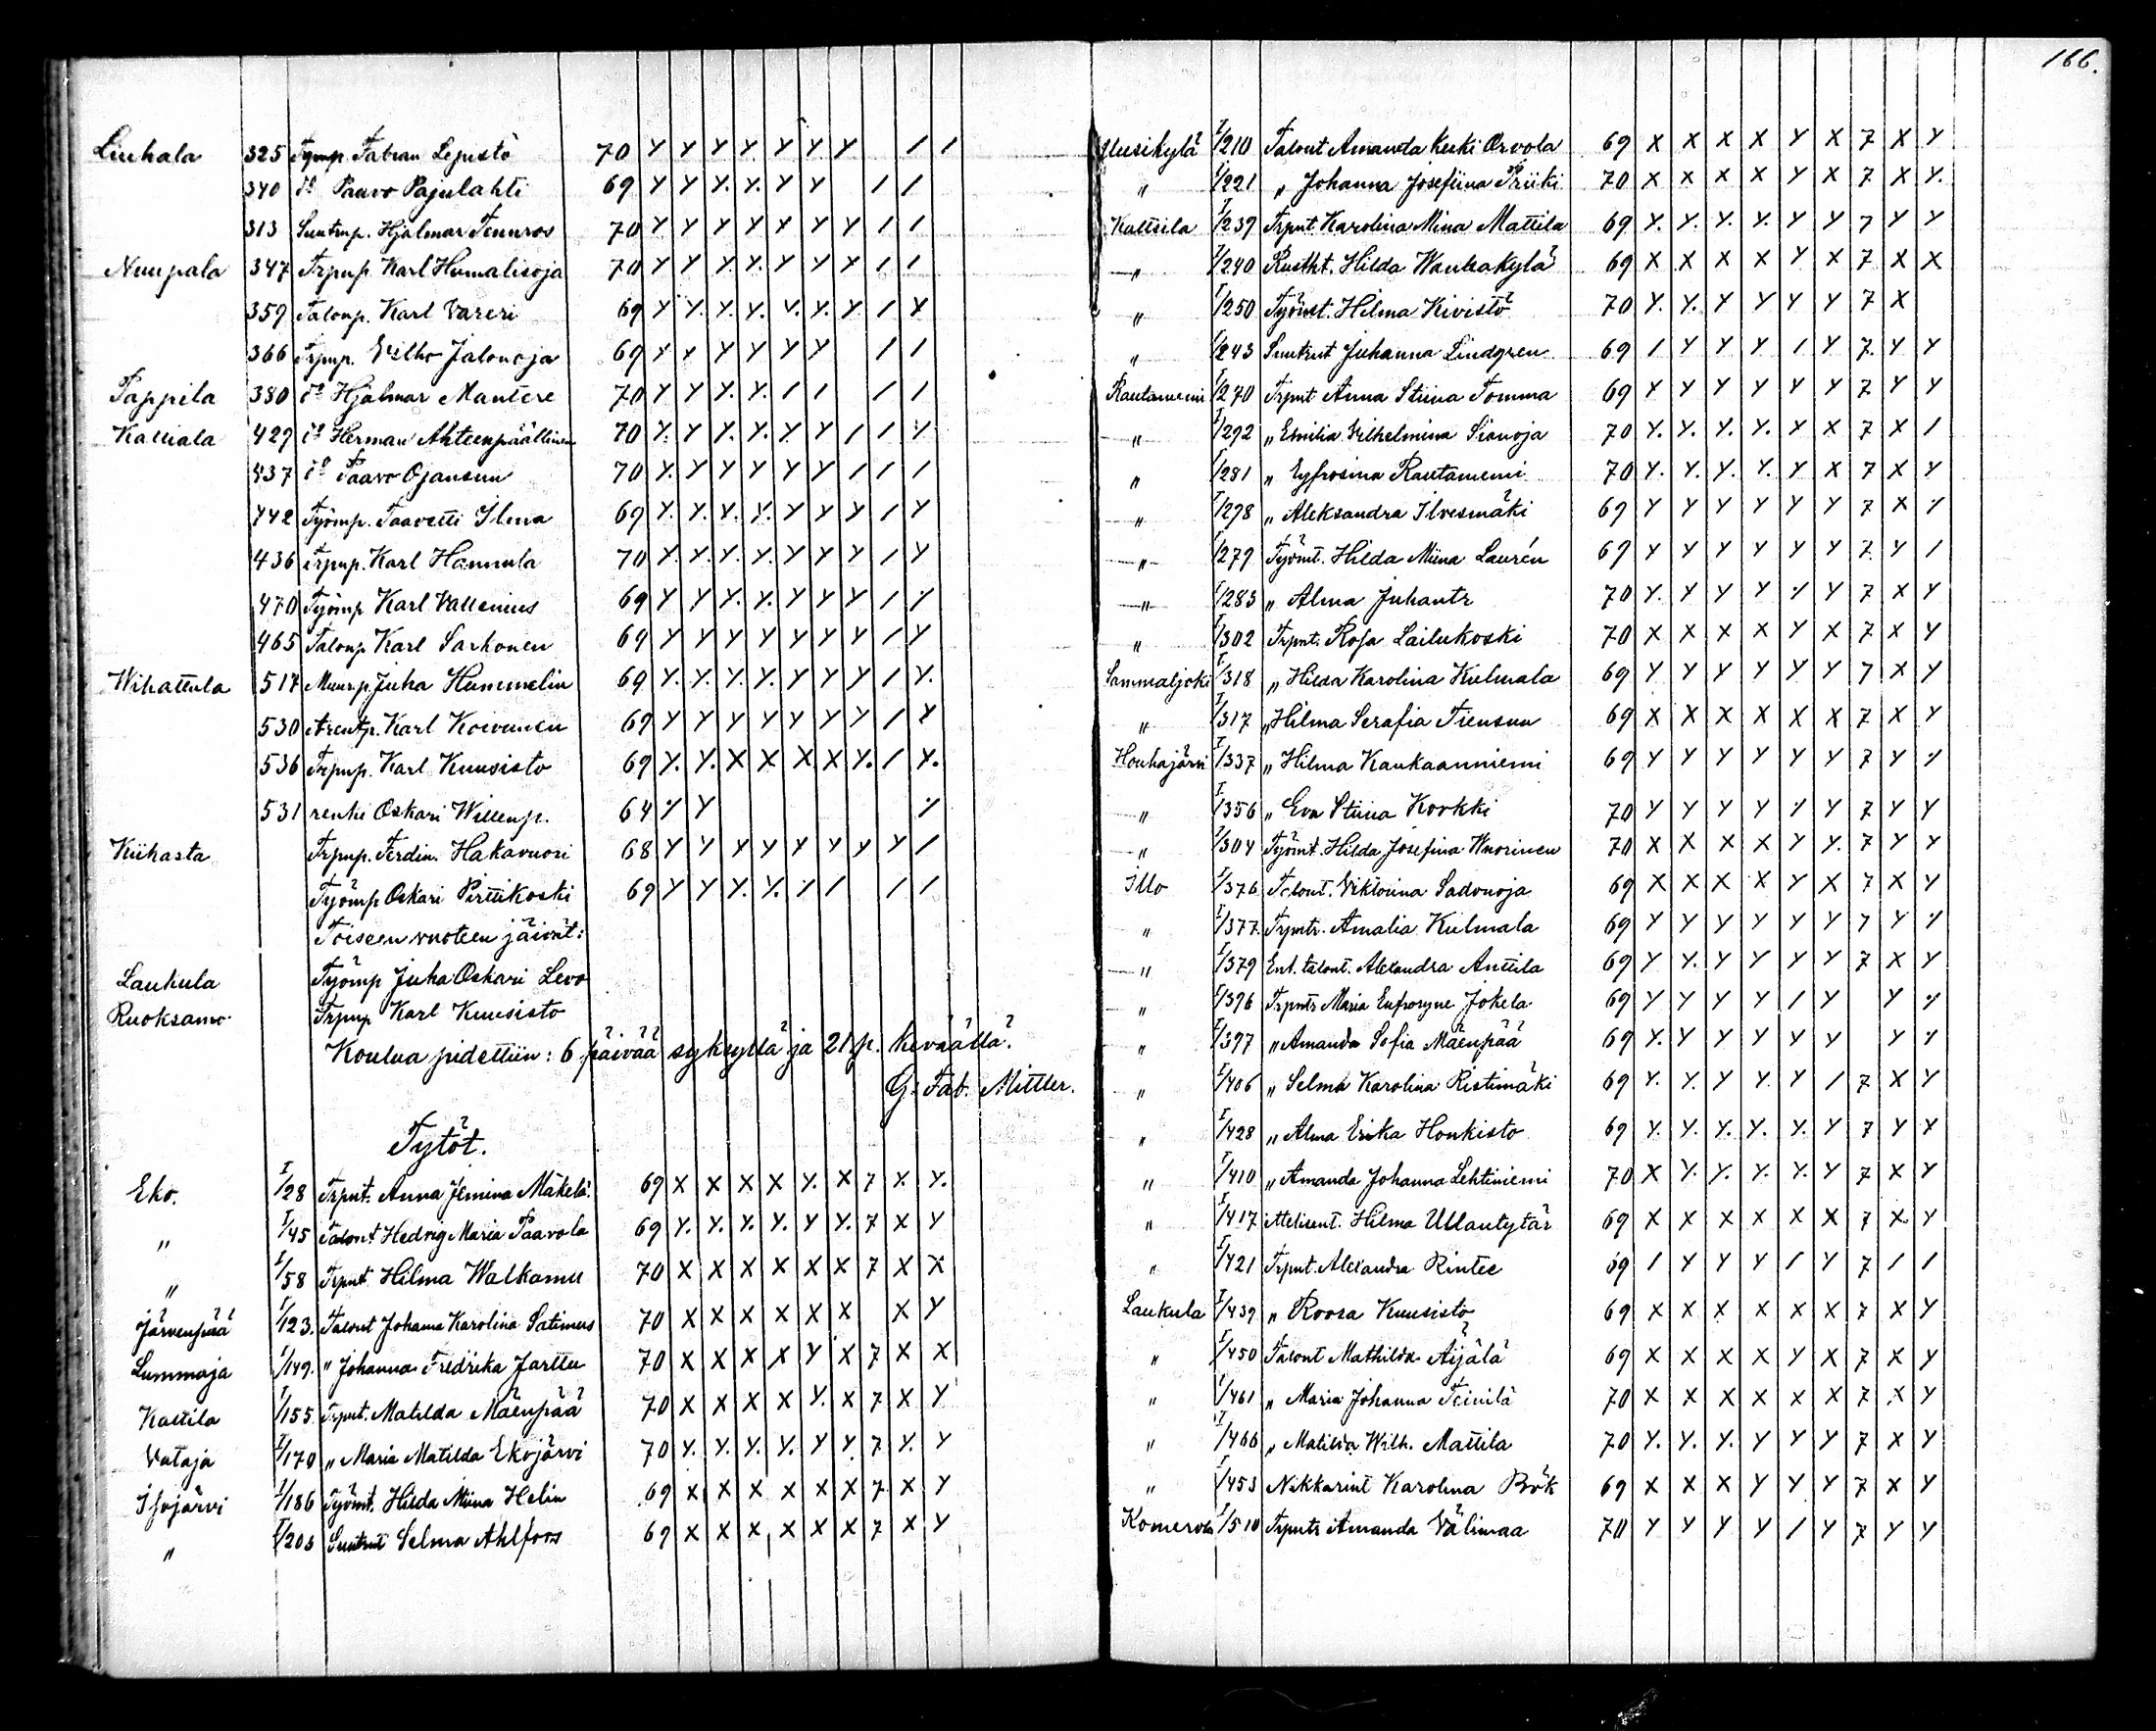 166.
Liuhala 325 Työmp. Fabian Lepistö 70 Y Y Y Y Y Y Y / /
340 d:o Paavo Pajulahti 69 Y Y Y. Y. Y Y / /
313 Suutrup. Hjalmar Tennros 70 Y Y Y Y Y Y Y / /
Nuupala 347 Trpup. Karl Humalisoja 70 Y Y Y. Y. Y Y Y / /
359 Talonp. Karl Vareri 69 Y Y. Y. Y. Y. Y. Y. / X
366 Trpup. Vilho Jalonoja 69 Y Y Y Y Y Y / /
Pappila 380 d:o Hjalmar Mantere 70 Y Y Y. Y. / / / /
Kalliala 429 d:o Herman Ahteenpäällinen 70 Y. Y Y. Y. Y. Y / / Y.
437 d:o Paavo Ojansuu 70 Y. Y Y Y Y Y / / /
442 Työmp. Taavetti Ilma 69 Y. Y. Y. Y. Y Y Y / Y
436 Trpup. Karl Hannula 70 Y. Y. Y. Y. Y Y Y / Y
470 Työmp Karl Vallenius 69 Y Y Y. Y. Y Y Y / /
465 Talonp Karl Sarhonen 69 Y Y Y Y Y Y Y / Y
Wihattula 517 Muurp. Juha Hummelin 69 Y. Y. Y. Y. Y Y Y / Y.
530 Arentp. Karl Koivunen 69 Y Y Y Y Y Y Y / Y
536 Trpup. Karl Kuusisto 69 Y. Y. X X X X Y. / Y.
531 renki Oskari Willenp. 64 Y Y /
Kiikasta Trpup. Ferdin. Hakavuori 68 Y Y Y Y Y Y Y Y /
Työmp Oskari Pirttikoski 69 Y Y Y. Y. / / / /
Toiseen vuoteen jäivät:
Laukula Työmp Juha Oskari Levo
Ruoksamo Trpup Karl Kuusisto
Koulua pidettiin: 6 päivää syksyllä ja 21 p. keväällä.
G. Fab. Mittler.
Tytöt.
Eko. I/28 Trput. Anna Jemina Mäkelä. 69 X X X X Y. X 7 X. Y.
" I/45 Talont Hedvig Maria Paavola 69 Y. Y. Y. Y. Y Y. 7 X Y
" I/58 Trput Hilma Walkamu 70 X X X X X X 7 X X
Järvenpää I/123. Talont Johanna Karolina Satimus 70 X X X X X X X Y
Lummaja I/149. " Johanna Fredrika Jarttu 70 X X X X Y X 7 X X
Kaltila I/155 Trput. Matilda Mäenpää 70 X X X X Y. X 7 X Y
Vataja I/170 " Maria Matilda Ekojärvi 70 Y. Y. Y. Y. Y Y. 7 Y. Y
Isojärvi I/186 Työmt. Hilda Miina Helin 69 X X X X X X 7 X Y
" I/203 Suutrut Selma Ahlfors 69 X X X X X X 7 X Y
Uusikylä I/210 Talont Amanda Keski Orvola 69 X X X X Y X 7 X Y
" I/221 " Johanna Josefiina Priiki 70 X X X X Y X 7 X Y.
Kaltsila I/239 Trput Karolina Mina Mattila 69 Y. Y. Y. Y. Y Y 7 Y Y
" I/240 Rustht. Hilda Wanhakylä 69 X X X X Y X 7 X X
" I/250 Työmt. Hilma Kivistö 70 Y. Y. Y Y Y Y 7 X
" I/243 Suutrut Juhanna Lindgren 69 / Y Y Y / Y 7. Y Y
Rautaniemi I/270 Trput Anna Stiina Tomma 69 Y Y Y Y Y Y 7 Y Y
" I/292 " Emilia Vilhelmina Sianoja 70 Y. Y. Y. Y. Y X 7 X /
" I/281 " Eyfrosina Rautaniemi 70 Y. Y. Y. Y. Y X 7 X Y
" I/298 " Aleksandra Ilvesmäki 69 Y Y Y Y Y Y 7 X /
" I/279 Työmt. Hilda Miina Laurén 69 Y Y Y Y Y Y 7. Y /
" I/283 " Alma Juhantr 70 Y. Y Y Y / Y 7 X Y
" I/302 Trput. Rosa Lailukoski 70 X X X X Y X 7 X Y
Sammaljoki I/318 " Hilda Karolina Kulmala 69 Y Y Y Y Y Y 7 X Y
" I/317 " Hilma Serafia Tiensuu 69 X X X X X X 7 X Y
Houhajärvi I/337 " Hilma Kaukaanniemi 69 Y Y Y Y Y Y 7 Y /
" I/356 " Eva Stiina Korkki 70 Y Y Y Y / Y 7 Y Y
" I/304 Työmt. Hilda Josefina Wuorinen 70 X X X X Y Y. 7 Y Y
Illo I/376 Talont. Viktoriina Sadonoja 69 X X X X Y X 7 X Y
" I/377. Trputr. Amalia Kulmala 69 Y Y Y Y Y Y 7 Y /
" I/379 Ent. talont. Alexandra Anttila 69 Y Y. Y Y Y Y 7 X Y
" I/396 Trputr Maria Eufrosyne Jokela 69 Y Y Y Y / Y Y /
" I/397 " Amanda Sofia Mäenpää 69 Y. Y Y Y Y Y Y /
" I/406 " Selma Karolina Ristimäki 69 Y. Y. Y Y. Y / 7 X Y
" I/428 " Alma Erika Honkisto 69 Y. Y. Y. Y. Y. Y 7 Y X
" I/410 " Amanda Johanna Lehtiniemi 70 X Y. Y. Y. Y. Y 7 X Y
" I/417 ittelisent. Hilma Ullantytär 69 X X X X X X 7 X. Y
" I/421 Trput. Alexandra Rintee 69 / Y Y Y / Y 7 / /
Laukula I/439 " Roosa Kuusisto 69 X X X X X X 7 X Y
" I/450 Talont Mathilda Äijälä 69 X X X X Y X 7 X Y
" I/461 " Maria Johanna Teinilä 70 X X X X X X 7 X Y
" I/466 " Matilda Wilh. Mattila 70 Y. Y. Y. Y Y Y 7 X Y
" I/453 Nikkarint Karolina Bök 69 X X X Y Y Y 7 X Y
Komeron I/510 Trputr Amanda Välimaa 70 Y Y Y Y / Y 7 Y Y